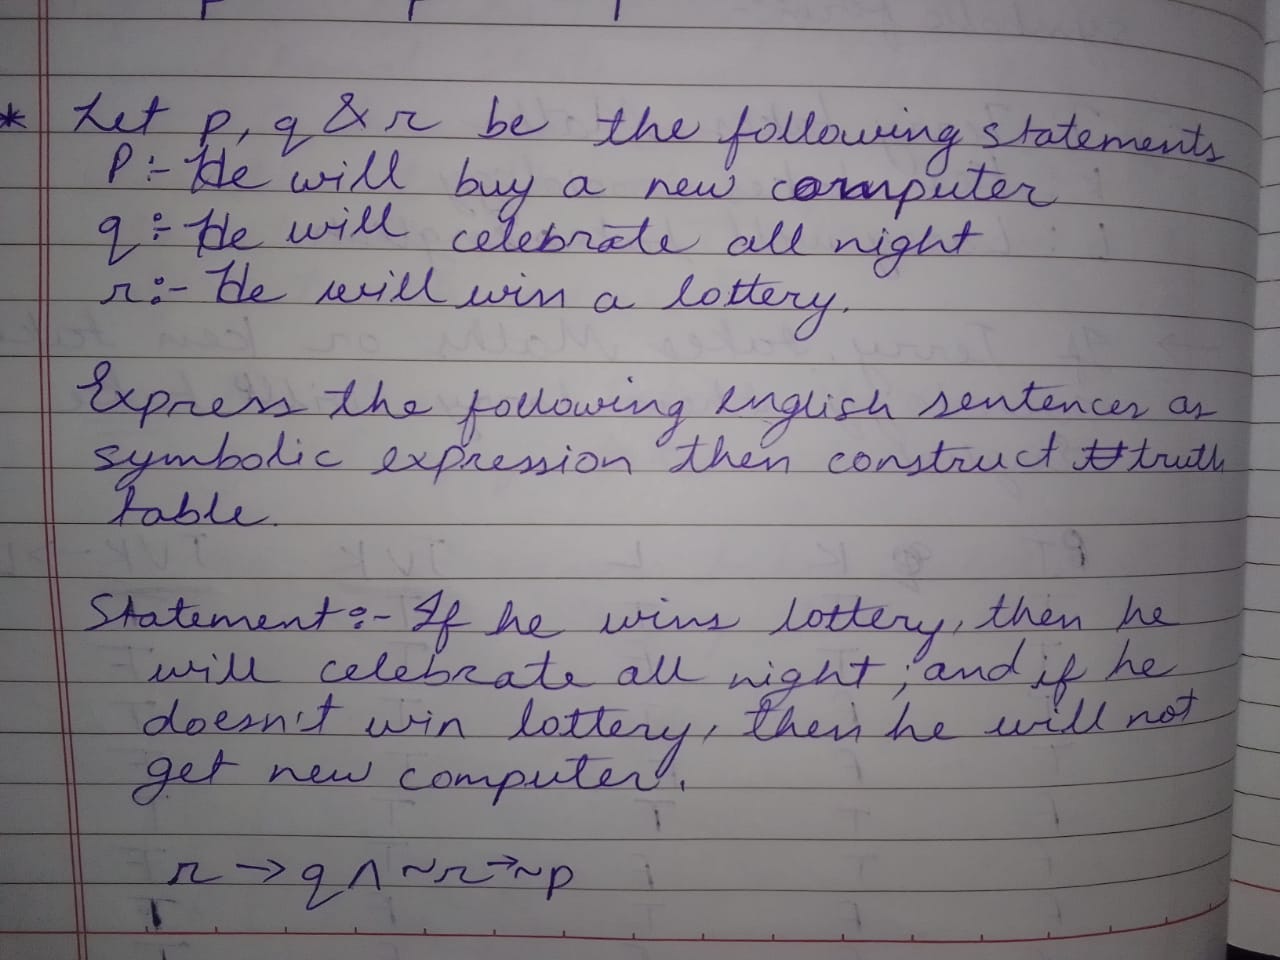 * Let p, q & r be the following statements
P :- He will buy a new computer
q :- He will celebrate all night
r :- He will win a lottery.
Express the following english sentences as
symbolic expression then construct truth
table.
Statement :- If he wins lottery, then he
will celebrate all night ; and if he
doesn't win lottery, then he will not
get new computer.
r → q ∧ ~r → ~p